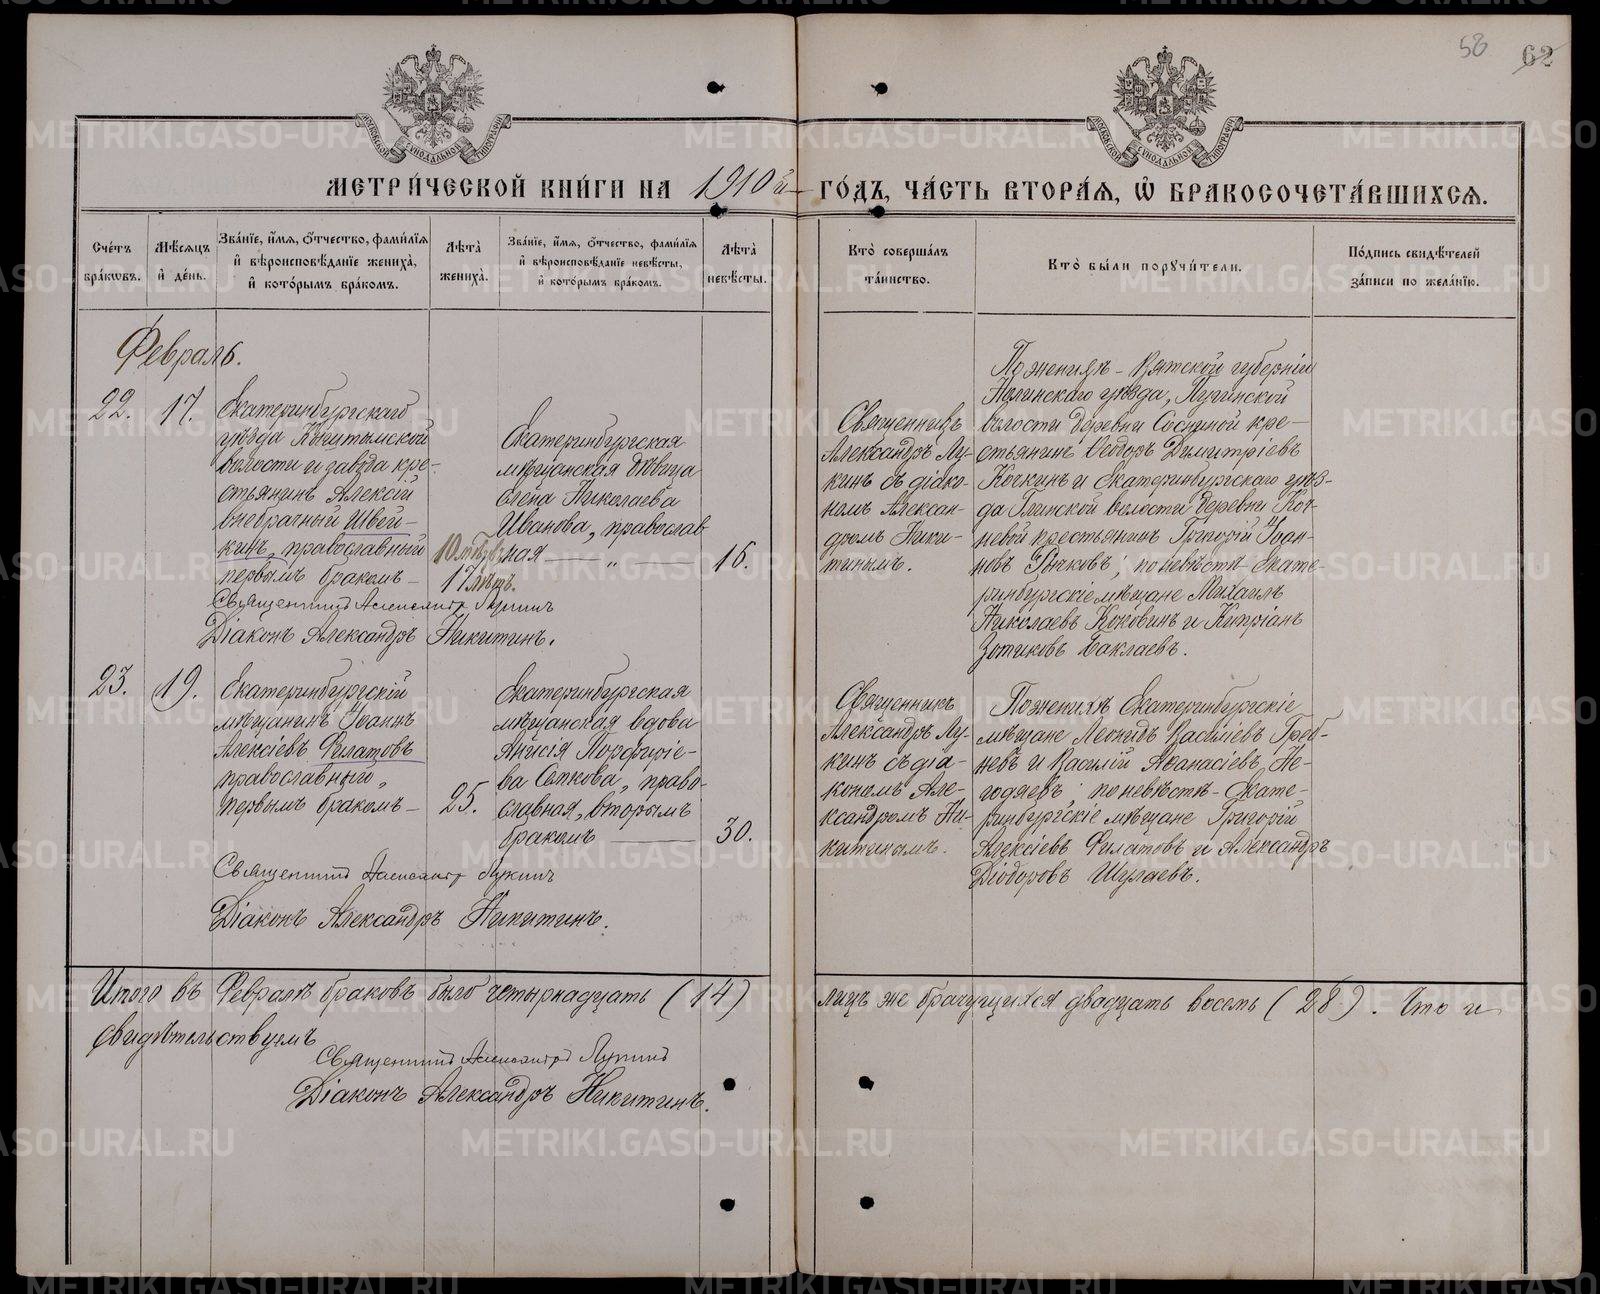 58 62
МОСКОВСКОЙ СѴНОДАЛЬНОЙ ТИПОГРАФІИ
МОСКОВСКОЙ СѴНОДАЛЬНОЙ ТИПОГРАФІИ
МЕТРИ́ЧЕСКОЙ КНИ́ГИ НА 1910й ГО́ДЪ, ЧА́СТЬ ВТОРА́Я, Ѡ БРАКОСОЧЕТА́ВШИХСЯ.
Сче́тъ бра́кѡвъ.
Мѣ́сяцъ и҆ де́нь.
Зва́нїе, и҆́мя, ѻ҆́тчество, фами́лїя и҆ вѣроисповѣ́данїе жениха̀, и҆ кото́рымъ бра́комъ.
Лѣ́та̀ жениха̀.
Зва́нїе, и҆́мя, ѻ҆́тчество, фами́лїя и҆ вѣроисповѣ́данїе невѣ́сты, и҆ кото́рымъ бра́комъ.
Лѣ́та̀ невѣ́сты.
Кто̀ соверша́лъ та́инство.
Кто̀ бы́ли порꙋчи́тели.
По́дпись свидѣ́телей за́писи по жела́нїю.
Февраль.
22.
17.
Екатеринбургскаго
уѣзда Кыштымской
волости и завода кре-
стьянинъ Алексій
внебрачный Швей-
кинъ, православный
первымъ бракомъ
17 лѣтъ.
Екатеринбургская
мѣщанская дѣвица
Елена Николаева
Иванова, православ-
ная „
16.
Священникъ
Александръ Лу-
кинъ съ діако-
номъ Алексан-
дромъ Ники-
тинымъ.
По женихѣ - Вятской губерніи
Нолинскаго уѣзда,
волости деревни Сосновой кре-
стьянинъ Ѳеодоръ Димитріевъ
Кочкинъ и Екатеринбургскаго уѣз-
да Глинской волости деревни Коч-
невой крестьянинъ Григорій Іоан-
новъ Рычковъ; по невѣстѣ Екате-
ринбургскіе мѣщане Михаилъ
Николаевъ Коковинъ и Кипріанъ
Зотиковъ Баклаевъ.
Священникъ Александръ Лукинъ
Діаконъ Александръ Никитинъ.
23.
19.
Екатеринбургскій
мѣщанинъ Іоаннъ
Алексіевъ Филатовъ
православный,
первымъ бракомъ
25.
Екатеринбургская
мѣщанская вдова
Анисія Порфиріе-
ва Сѣткова, право-
славная, вторымъ
бракомъ
30.
Священникъ
Александръ Лу-
кинъ съ діа-
кономъ Але-
ксандромъ Ни-
китинымъ.
По женихѣ Екатеринбургскіе
мѣщане Леонидъ Василіевъ Греб-
невъ и Василій Аѳанасіевъ Не-
годяевъ; по невѣстѣ - Екате-
ринбургскіе мѣщане Григорій
Алексіевъ Филатовъ и Александръ
Діодоровъ Шулаевъ.
Священникъ Александръ Лукинъ
Діаконъ Александръ Никитинъ.
Итого въ Февралѣ браковъ было четырнадцать (14) лицъ же брачущихся двадцать восемь (28). Что и
свидѣтельствуемъ
Священникъ Александръ Лукинъ
Діаконъ Александръ Никитинъ.
METRIKI.GASO-URAL.RU